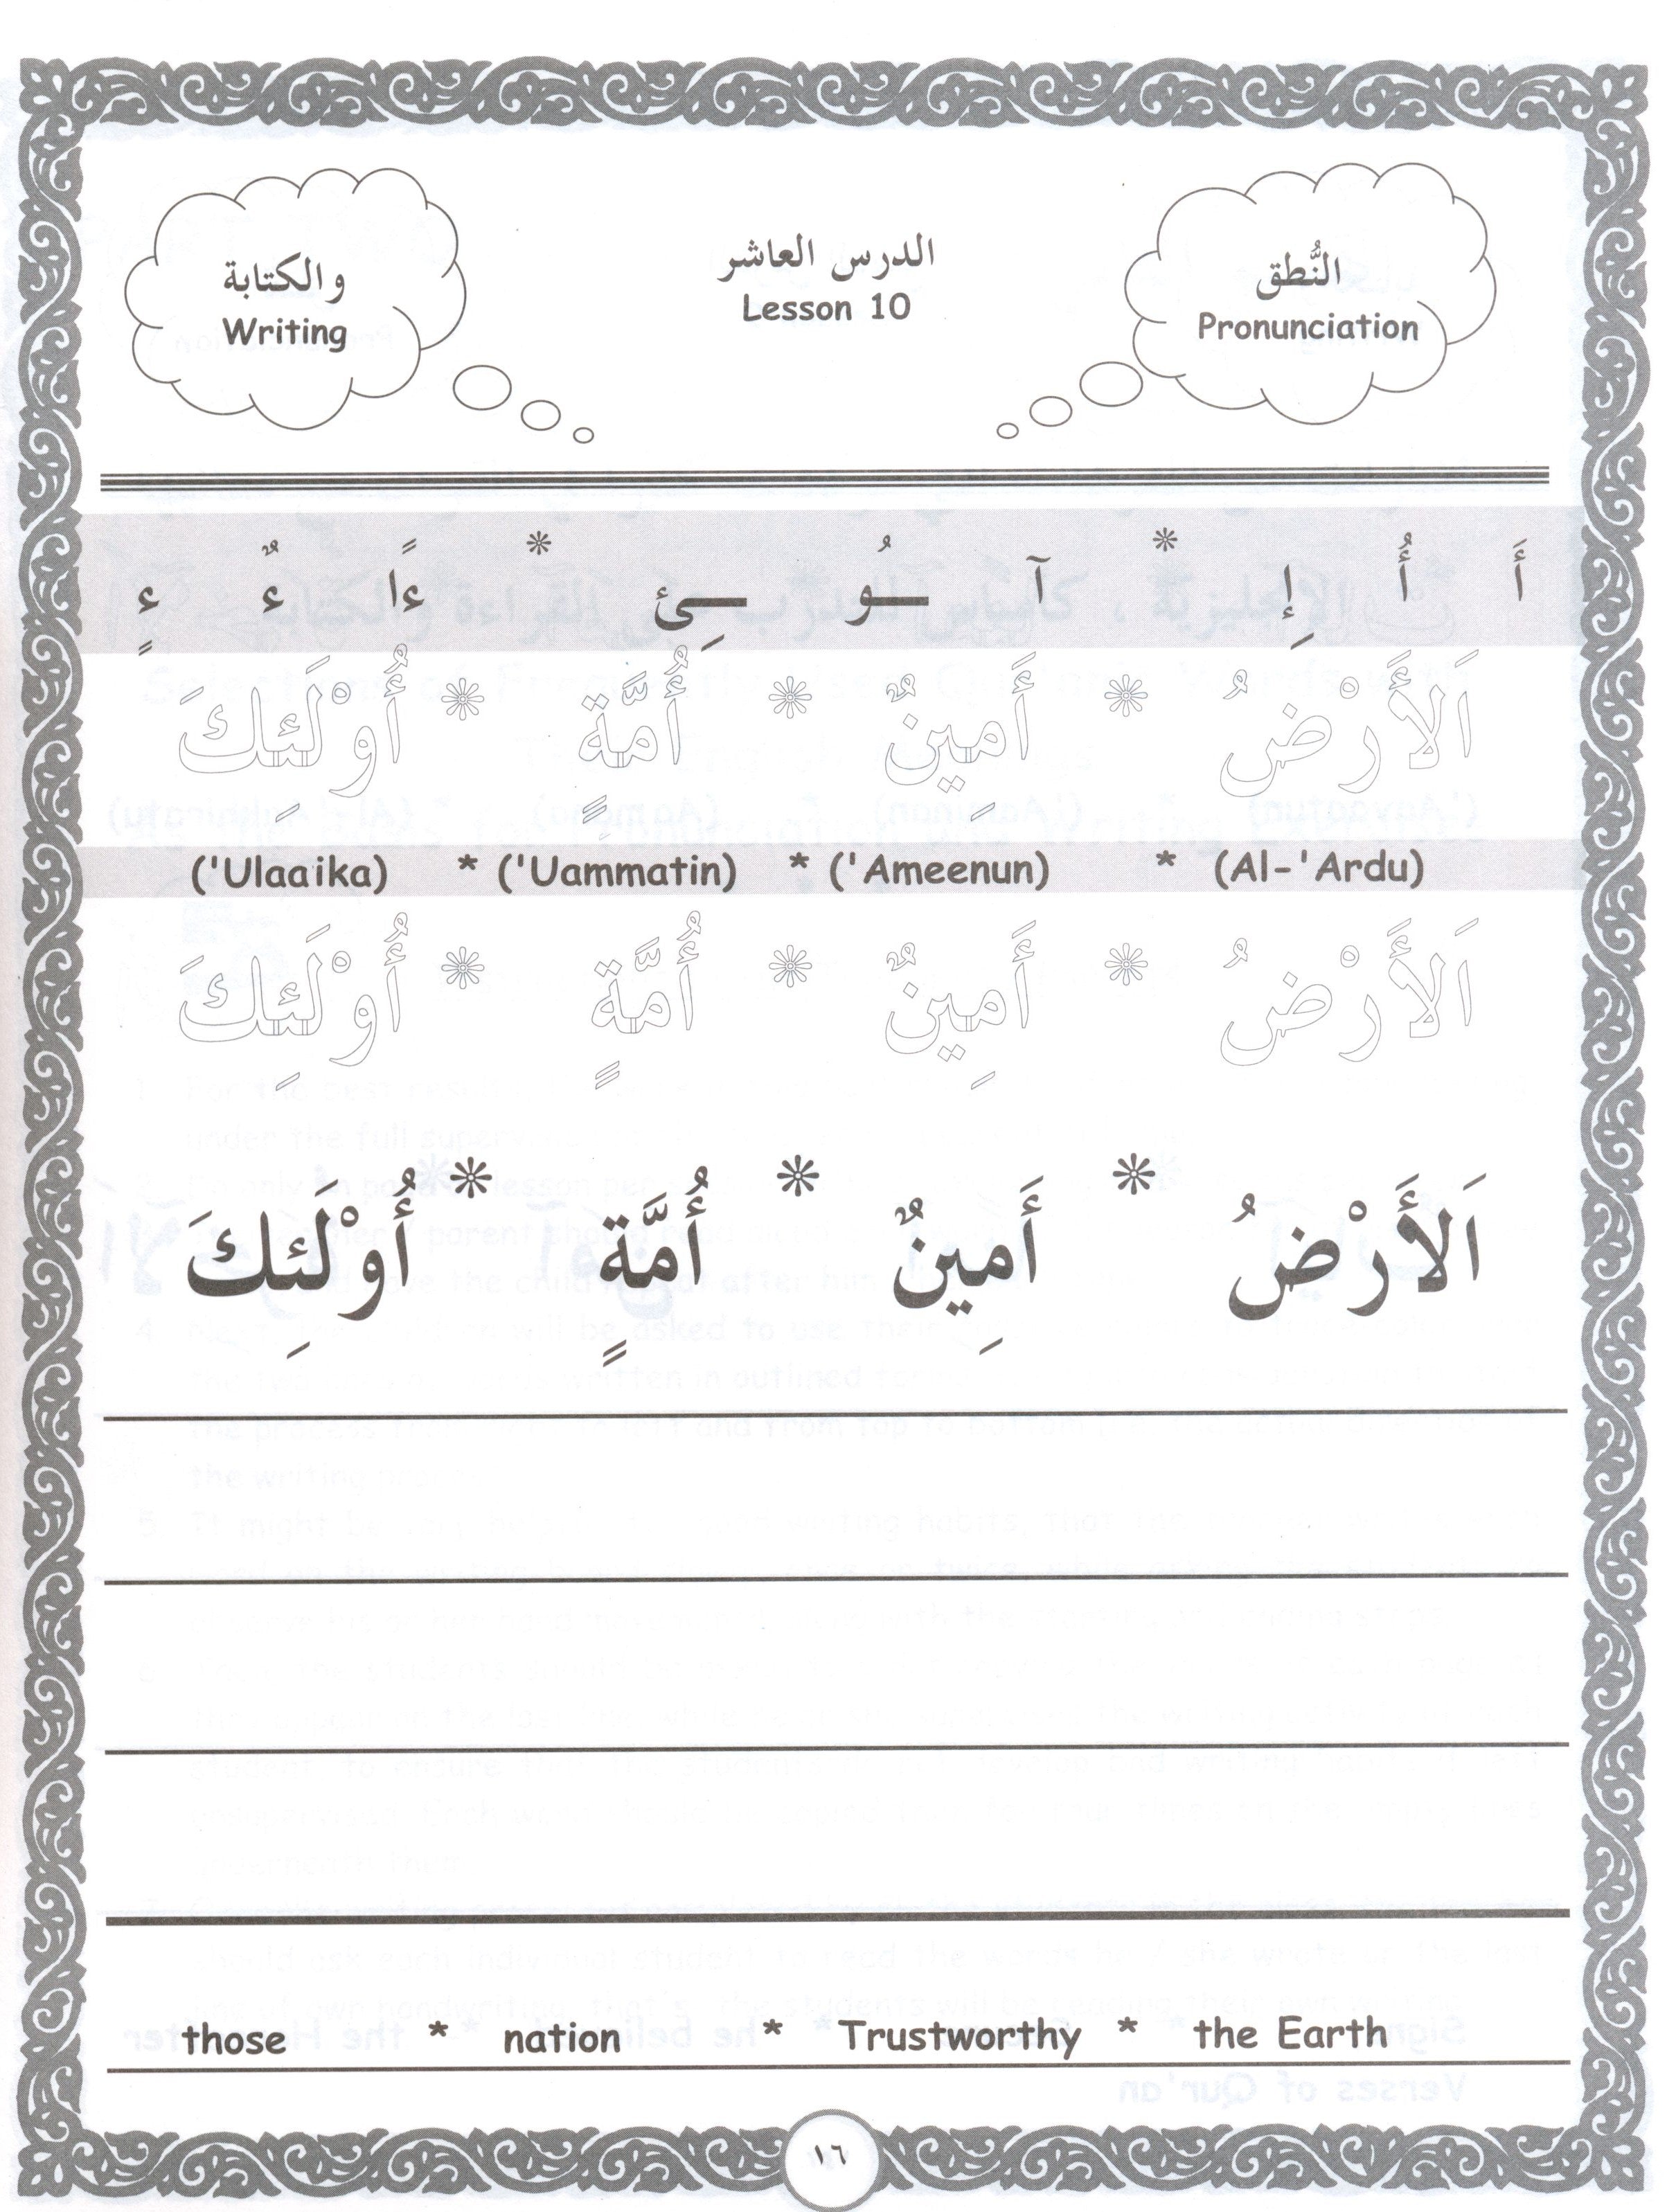 النُّطق
Pronunciation
الدرس العاشر
Lesson 10
والكتابة
Writing
أَ أُ إِ * آ ـُو ـِئ * ءًا ءٌ ءٍ
اَلأَرْضُ * أَمِينٌ * أُمَّةٍ * أُوْلَئِكَ
('Ulaaika) * ('Uammatin) * ('Ameenun) * (Al-'Ardu)
اَلأَرْضُ * أَمِينٌ * أُمَّةٍ * أُوْلَئِكَ
اَلأَرْضُ * أَمِينٌ * أُمَّةٍ * أُوْلَئِكَ
those * nation * Trustworthy * the Earth
١٦